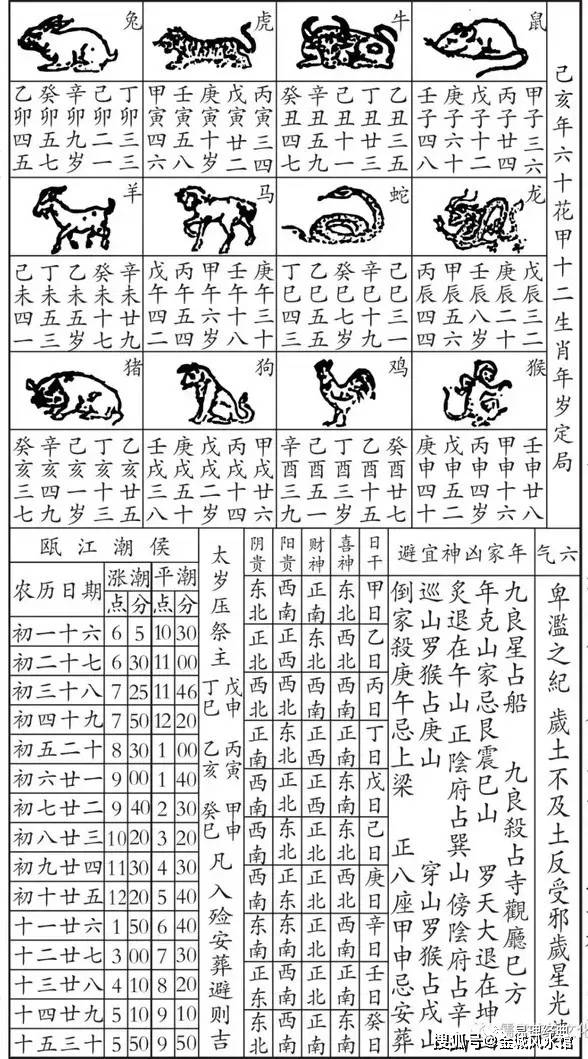 己亥年六十花甲十二生肖年岁定局
鼠
甲子三六
丙子廿四
戊子十二
庚子六十
壬子四八
牛
乙丑三五
丁丑廿三
己丑十一
辛丑五九
癸丑四七
虎
丙寅三四
戊寅廿二
庚寅十岁
壬寅五八
甲寅四六
兔
丁卯三三
己卯二一
辛卯九岁
癸卯五七
乙卯四五
龙
戊辰三二
庚辰二十
壬辰八岁
甲辰五六
丙辰四四
蛇
己巳三一
辛巳十九
癸巳七岁
乙巳五五
丁巳四三
马
庚午三十
壬午十八
甲午六岁
丙午五四
戊午四二
羊
辛未廿九
癸未十七
乙未五岁
丁未五三
己未四一
猴
壬申廿八
甲申十六
丙申四岁
戊申五二
庚申四十
鸡
癸酉廿七
乙酉十五
丁酉三岁
己酉五一
辛酉三九
狗
甲戌廿六
丙戌十四
戊戌二岁
庚戌五十
壬戌三八
猪
乙亥廿五
丁亥十三
己亥一岁
辛亥四九
癸亥三七
六气
卑濫之紀 歲土不及土反受邪歲星光
年家凶神宜避
九良星占船 九良殺占寺觀廳巳方
年克山家忌艮震巳山 罗天大退在坤
炙退在午山正陰府占巽山傍陰府占辛
巡山罗猴占庚山 穿山罗猴占戌山
倒家殺庚午忌上梁 正八座甲申忌安葬
日干 喜神 财神 阳贵 阴贵
甲日 东北
乙日 西北
丙日 西南
丁日 正南
戊日 东南
己日 东北
庚日 西北
辛日 西南
壬日 正南
癸日 东南
太岁压祭主
戊申 丁巳
丙寅 乙亥
甲申 癸巳
凡入殓安葬避则吉
瓯江潮侯
农历日期 涨潮 平潮
点 分 点 分
初一十六 6 5 10 30
初二十七 6 30 11 00
初三十八 7 25 11 46
初四十九 7 50 12 20
初五二十 8 30 1 00
初六廿一 9 00 1 40
初七廿二 9 40 2 30
初八廿三 10 20 3 20
初九廿四 11 30 4 30
初十廿五 12 20 5 40
十一廿六 1 50 6 40
十二廿七 3 00 7 30
十三廿八 4 10 8 20
十四廿九 5 10 9 10
十五三十 5 50 9 50
搜狐号@金城风水馆